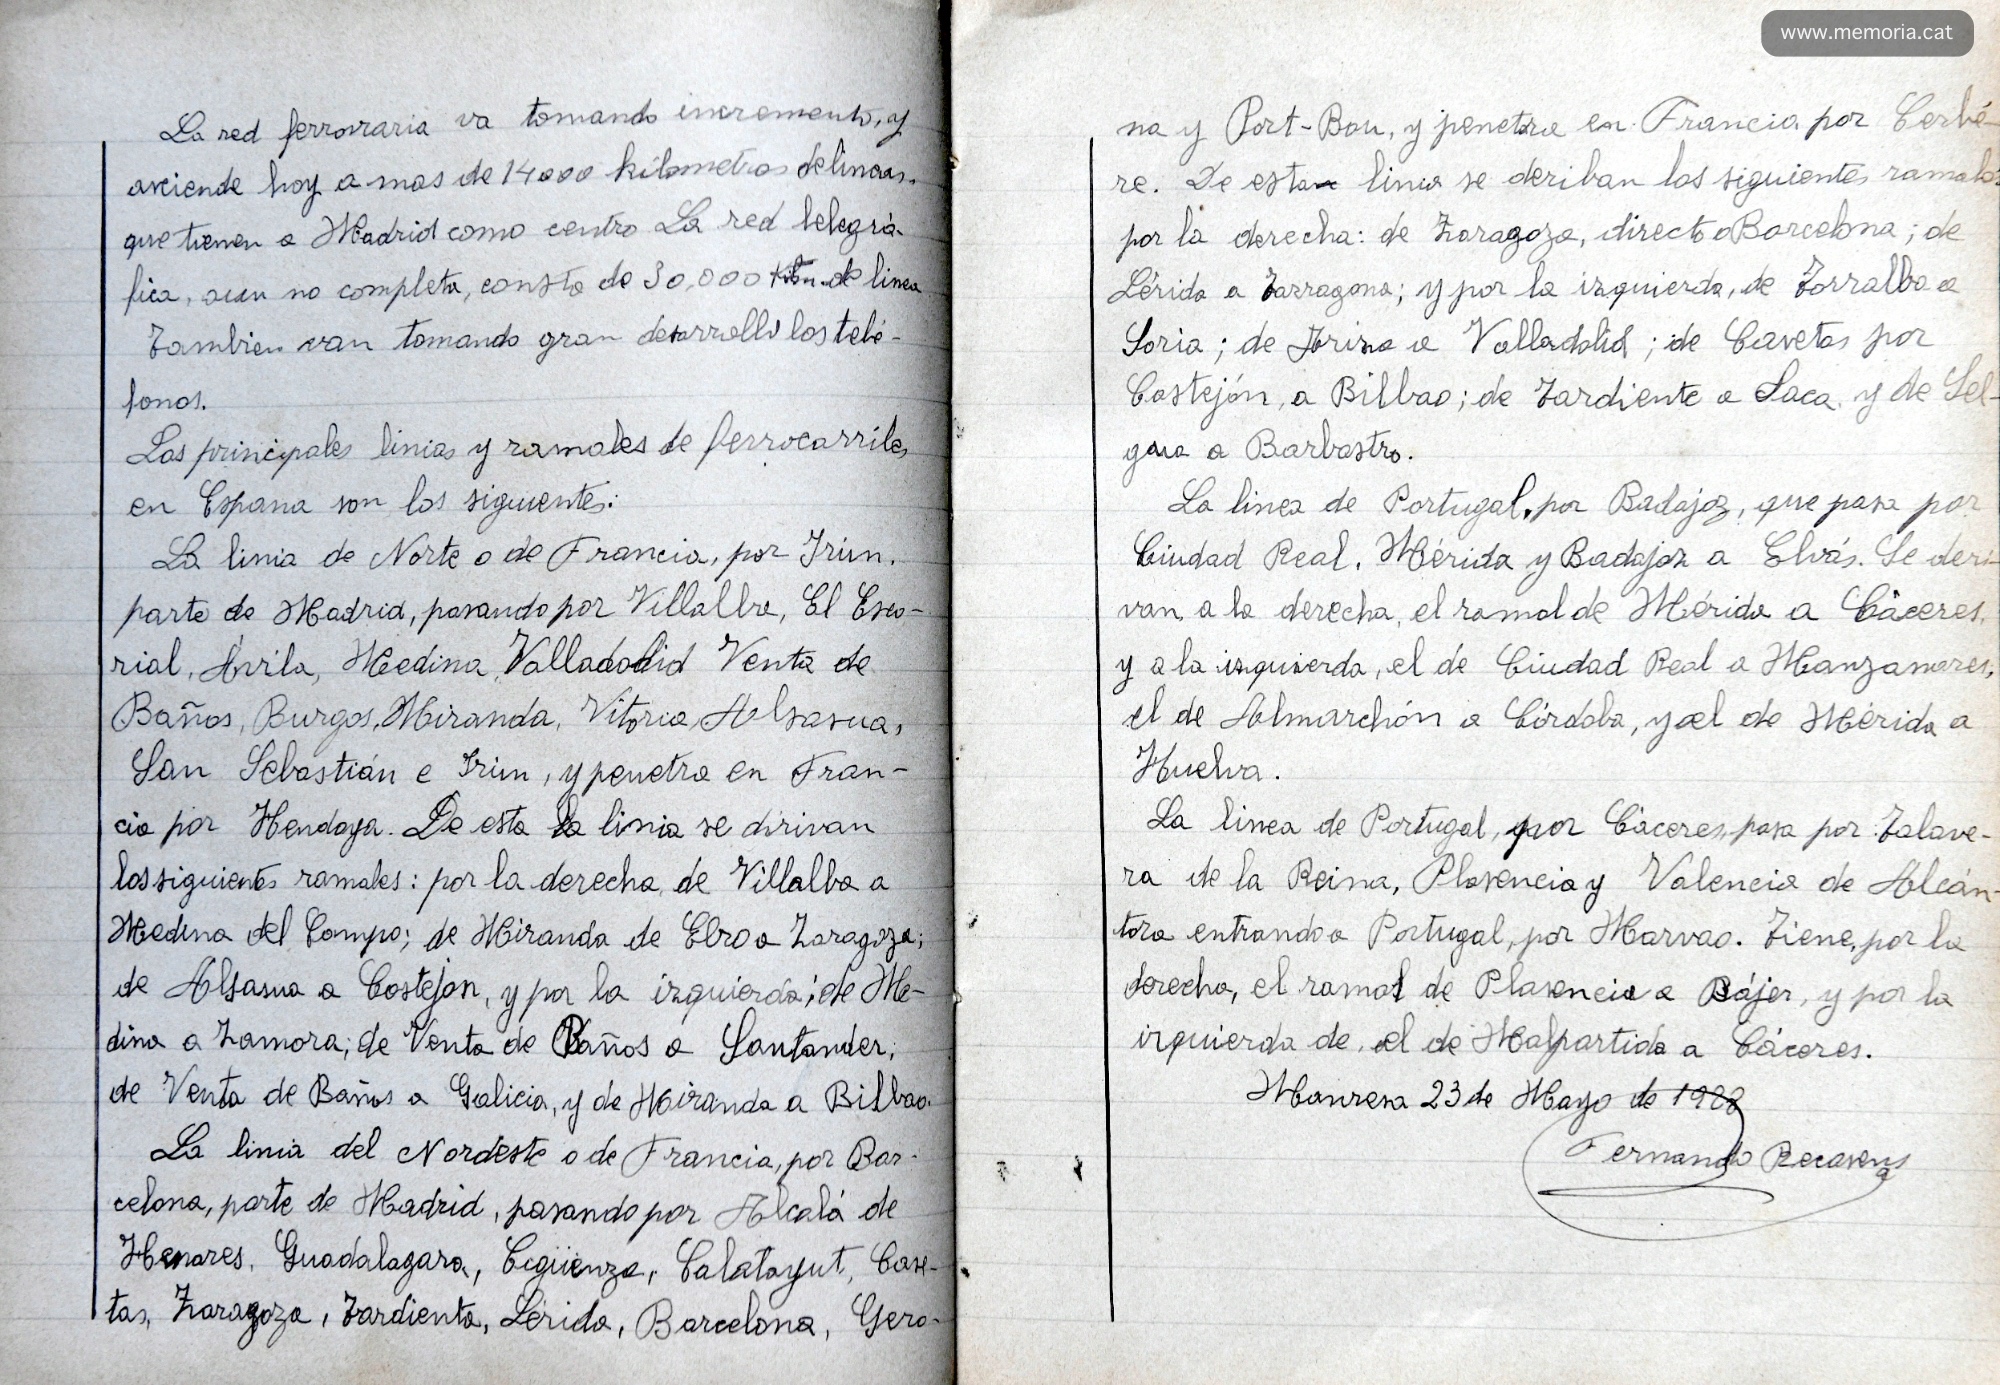 www.memoria.cat
La red ferroviaria va tomando incremento, y
asciende hoy a mas de 14000 kilometros de lineas,
que tienen a Madrid como centro La red telegrá-
fica, aun no completa, consta de 30,000 de linea
Tambien van tomando gran desarrollo los telé-
fonos.
Las principales linias y ramales de ferrocarriles
en Espana son los siguientes:
La linia de Norte o de Francia, por Irun.
parte de Madrid, pasando por Villalba, El Esco-
rial, Ávila, Medina, Valladolid Venta de
Baños, Burgos, Miranda, Vitoria, Alsasua,
San Sebastián e Irun, y penetra en Fran-
cia por Hendaya. De esta la linia se dirivan
los siguientes ramales: por la derecha, de Villalba a
Medina del Campo; de Miranda de Ebro a Zaragoza;
de Alsasua a Costejon, y por la izquierda; de Me-
dina a Zamora; de Venta de Baños a Santander;
de Venta de Baños a Galicia, y de Miranda a Bilbao.
La linia del Nordeste o de Francia, por Bar-
celona, parte de Madrid, pasando por Alcalá de
Henares, Guadalagara, Cigüenza, Calatayut, Case-
tas, Zaragoza, Tardienta, Lérida, Barcelona, Gero-
na y Port-Bou, y penetra en Francia por Cerbé-
re. De esta linia se deriban los siguientes ramales
por la derecha: de Zaragoza, directo a Barcelona; de
Lérida a Tarragona; y por la izquierda, de Torralba a
Soria; de Ariza a Valladolid; de Casetas por
Costejón, a Bilbao; de Tardiente a Jaca, y de Sel-
gua a Barbastro.
La linea de Portugal, por Badajoz, que pasa por
Ciudad Real, Mérida y Badajoz a Elvás. Se deri-
van, a la derecha, el ramal de Mérida a Cáceres,
y a la izquierda, el de Ciudad Real a Manzanares,
el de Almorchón a Córdoba, y el de Mérida a
Huelva.
La linea de Portugal, por Cáceres, pasa por Talave-
ra de la Reina, Plasencia y Valencia de Alcán-
tara entrando a Portugal, por Marvao. Tiene, por la
derecha, el ramal de Plasencia a Bájer, y por la
izquierda de, el de Malpartida a Cáceres.
Manresa 23 de Mayo de 1928
Fernando Recasens